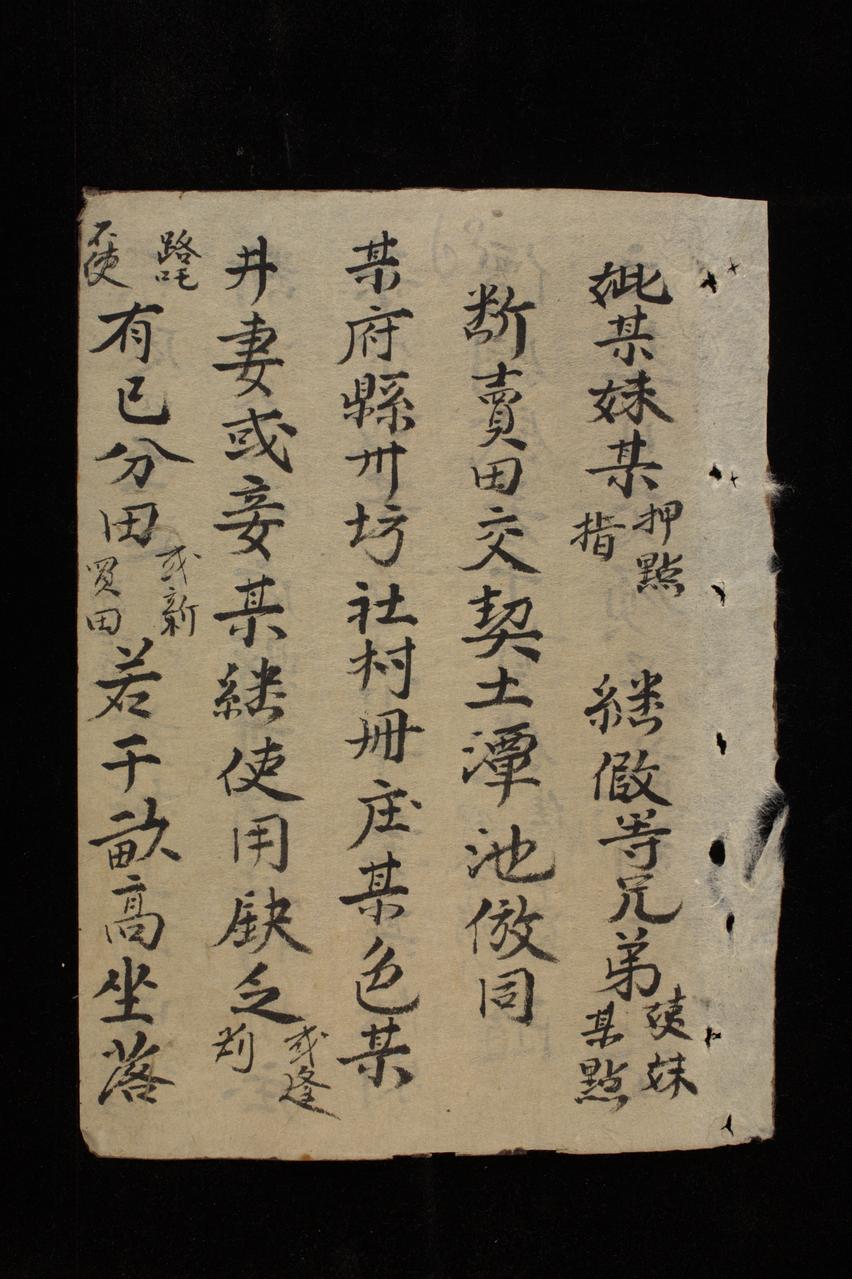 妣某妹某押點指継假等兄弟姨妹某點
断賣田交契土潭池倣同
某府縣卅坊社村册庄某色某
井妻或妾某継使用缺乏或逢
路吒不使有已分田或新買田若干畝高坐落